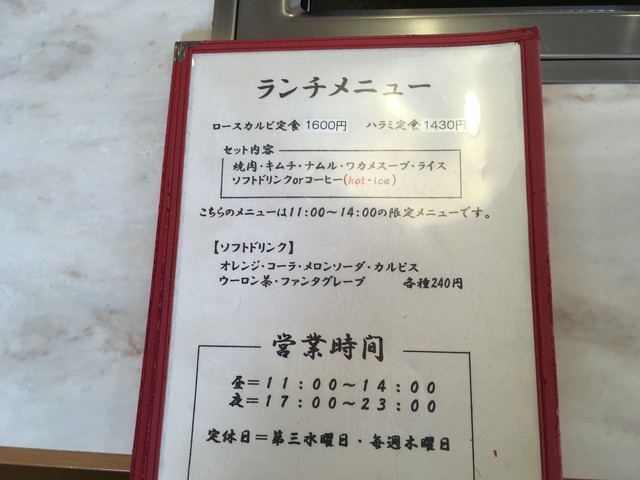 ランチメニュー
ロースカルビ定食 1600円 ハラミ定食 1430円
セット内容
焼肉・キムチ・ナムル・ワカメスープ・ライス
ソフトドリンクorコーヒー(hot・ice)
こちらのメニューは11:00~14:00の限定メニューです。
【ソフトドリンク】
オレンジ・コーラ・メロンソーダ・カルピス
ウーロン茶・ファンタグレープ 各種240円
営業時间
昼=11:00~14:00
夜=17:00~23:00
定休日=第三水曜日・毎週木曜日